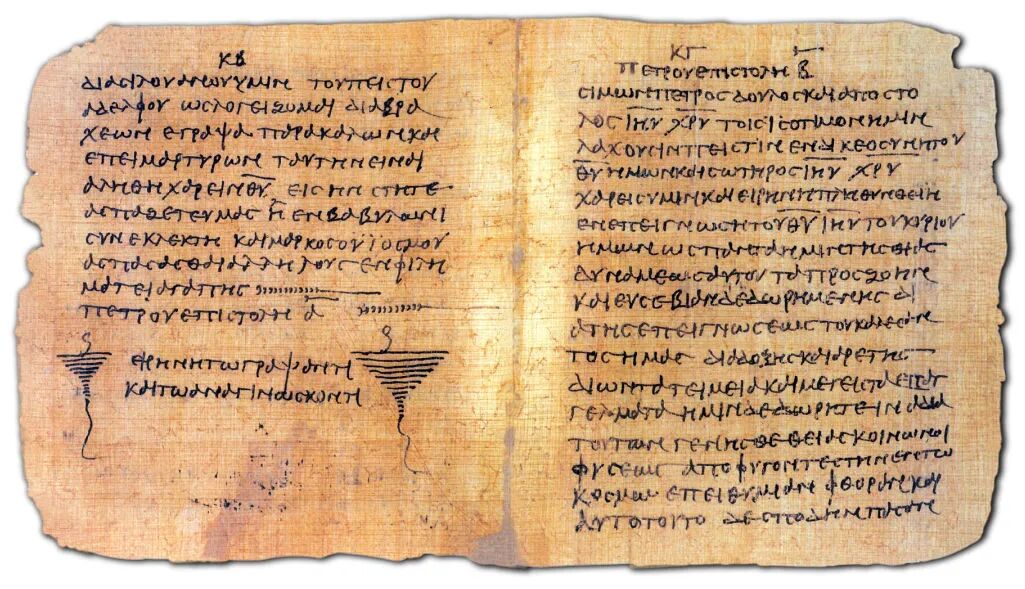 ΚΒ
ΔΙΑϹΙΛΟΥΑΝΟΥΥΜΙΝ ΤΟΥΠΕΙϹΤΟΥ
ΑΔΕΛΦΟΥ ΩϹΛΟΓΕΙΖΟΜΑΙ ΔΙΑΒΡΑ
ΧΕΩΝ ΕΓΡΑΨΑ ΠΑΡΑΚΑΛΩΝΚΑΙ
ΕΠΕΙΜΑΡΤΥΡΩΝ ΤΑΥΤΗΝΕΙΝΑΙ
ΑΛΗΘΗΧΑΡΕΙΝΘ̅Υ̅ ΕΙϹΗΝϹΤΗΤΕ
ΑϹΠΑΖΕΤΕΥΜΑϹ Η ΕΝΒΑΒΥΛΩΝΙ
ϹΥΝΕΚΛΕΚΤΗ ΚΑΙΜΑΡΚΟϹΟΥΙΟϹΜΟΥ
ΑϹΠΑϹΑϹΘΑΙΑΛΛΗΛΟΥϹΕΝΦΙΛΗ
ΜΑΤΕΙΑΓΑΠΗϹ
ΠΕΤΡΟΥΕΠΙϹΤΟΛΗ Α̅
ΕΙΡΗΝΗΤΩΓΡΑΨΑΝΤΙ
ΚΑΙΤΩΑΝΑΓΙΝΩϹΚΟΝΤΙ
ΚΓ
ΠΕΤΡΟΥΕΠΙϹΤΟΛΗ Β̅
ϹΙΜΩΝΠΕΤΡΟϹΔΟΥΛΟϹΚΑΙΑΠΟϹΤΟ
ΛΟϹΙ̅Η̅Υ̅ Χ̅Ρ̅Υ̅ ΤΟΙϹΙϹΟΤΙΜΟΝΗΜΙΝ
ΛΑΧΟΥϹΙΝΠΕΙϹΤΙΝ ΕΝΔΙΚΕΟϹΥΝΗΤΟΥ
Θ̅Υ̅ΗΜΩΝΚΑΙϹΩΤΗΡΟϹΙ̅Η̅Υ̅ Χ̅Ρ̅Υ̅
ΧΑΡΕΙϹΥΜΙΝΚΑΙΕΙΡΗΝΗΠΛΗΘΥΝΘΕΙΗ
ΕΝΕΠΕΙΓΝΩϹΗΤΟΥΘ̅Υ̅Ι̅Η̅Υ̅ΤΟΥΚΥΡΙΟΥ
ΗΜΩΝ ΩϹΠΑΝΤΑΗΜΙΝΤΗϹΘΙΑϹ
ΔΥΝΑΜΕΩϹΑΥΤΟΥ ΤΑΠΡΟϹΖΩΗΝ
ΚΑΙΕΥϹΕΒΙΑΝΔΕΔΩΡΗΜΕΝΗϹ ΔΙ
ΑΤΗϹΕΠΕΙΓΝΩϹΕΩϹΤΟΥΚΑΛΕϹΑΝ
ΤΟϹΗΜΑϹ ΔΙΑΔΟΞΗϹΚΑΙΑΡΕΤΗϹ
ΔΙΩΝΤΑΤΕΙΜΕΙΑΚΑΙΜΕΓΕΙϹΤΑΕΠΑΓ
ΓΕΛΜΑΤΑ ΗΜΙΝΔΕΔΩΡΗΤΕΙΝΑΔΙΑ
ΤΟΥΤΩΝ ΓΕΝΗϹΘΕΘΕΙΑϹΚΟΙΝΩΝΟΙ
ΦΥϹΕΩϹ ΑΠΟΦΥΓΟΝΤΕϹΤΗΝΕΝΤΩ
ΚΟϹΜΩ ΕΠΕΙΘΥΜΙΑΝ ΦΘΟΡΑΝΚΑΙ
ΑΥΤΟΤΟΥΤΟ ΔΕϹΠΟΔΗΝΠΑϹΑΝ